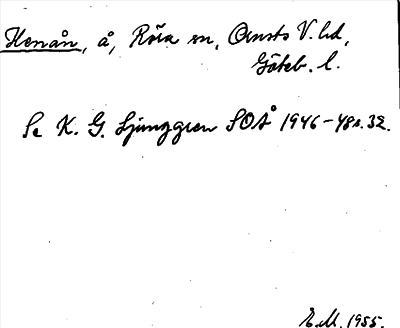 Henån, å, Röra sn, Orusts V. hd,
Göteb. l.
Se K. G. Ljunggren SOÅ 1946-48 s. 32.
E.M. 1955.